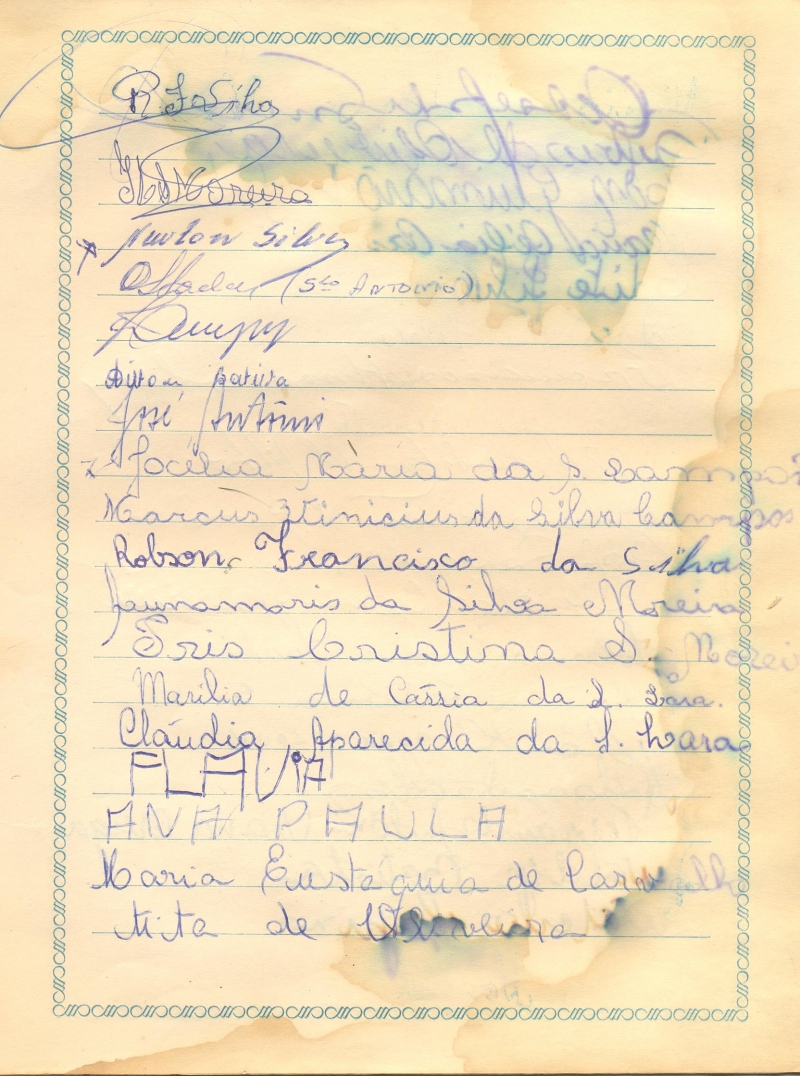 R J da Silva
Moreira
Newton Silva
(Sto Antonio)
Batista
José Antônio
Jocélia Maria da S. Campos
Marcus Vinicius da Silva Campos
Robson Francisco da Silva
da Silva Moreira
Iris Cristina S. Moreira
Marilia de Cássia da S. Lara.
Cláudia Aparecida da S. Lara
FLAVIA
ANA PAULA
Maria Eustáquia de Carvalho
Tita de Oliveira